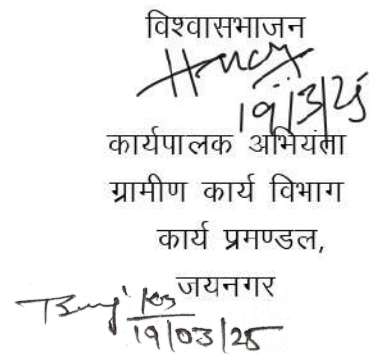 विश्वासभाजन
19/3/25
कार्यपालक अभियंता
ग्रामीण कार्य विभाग
कार्य प्रमण्डल,
जयनगर
19/03/25